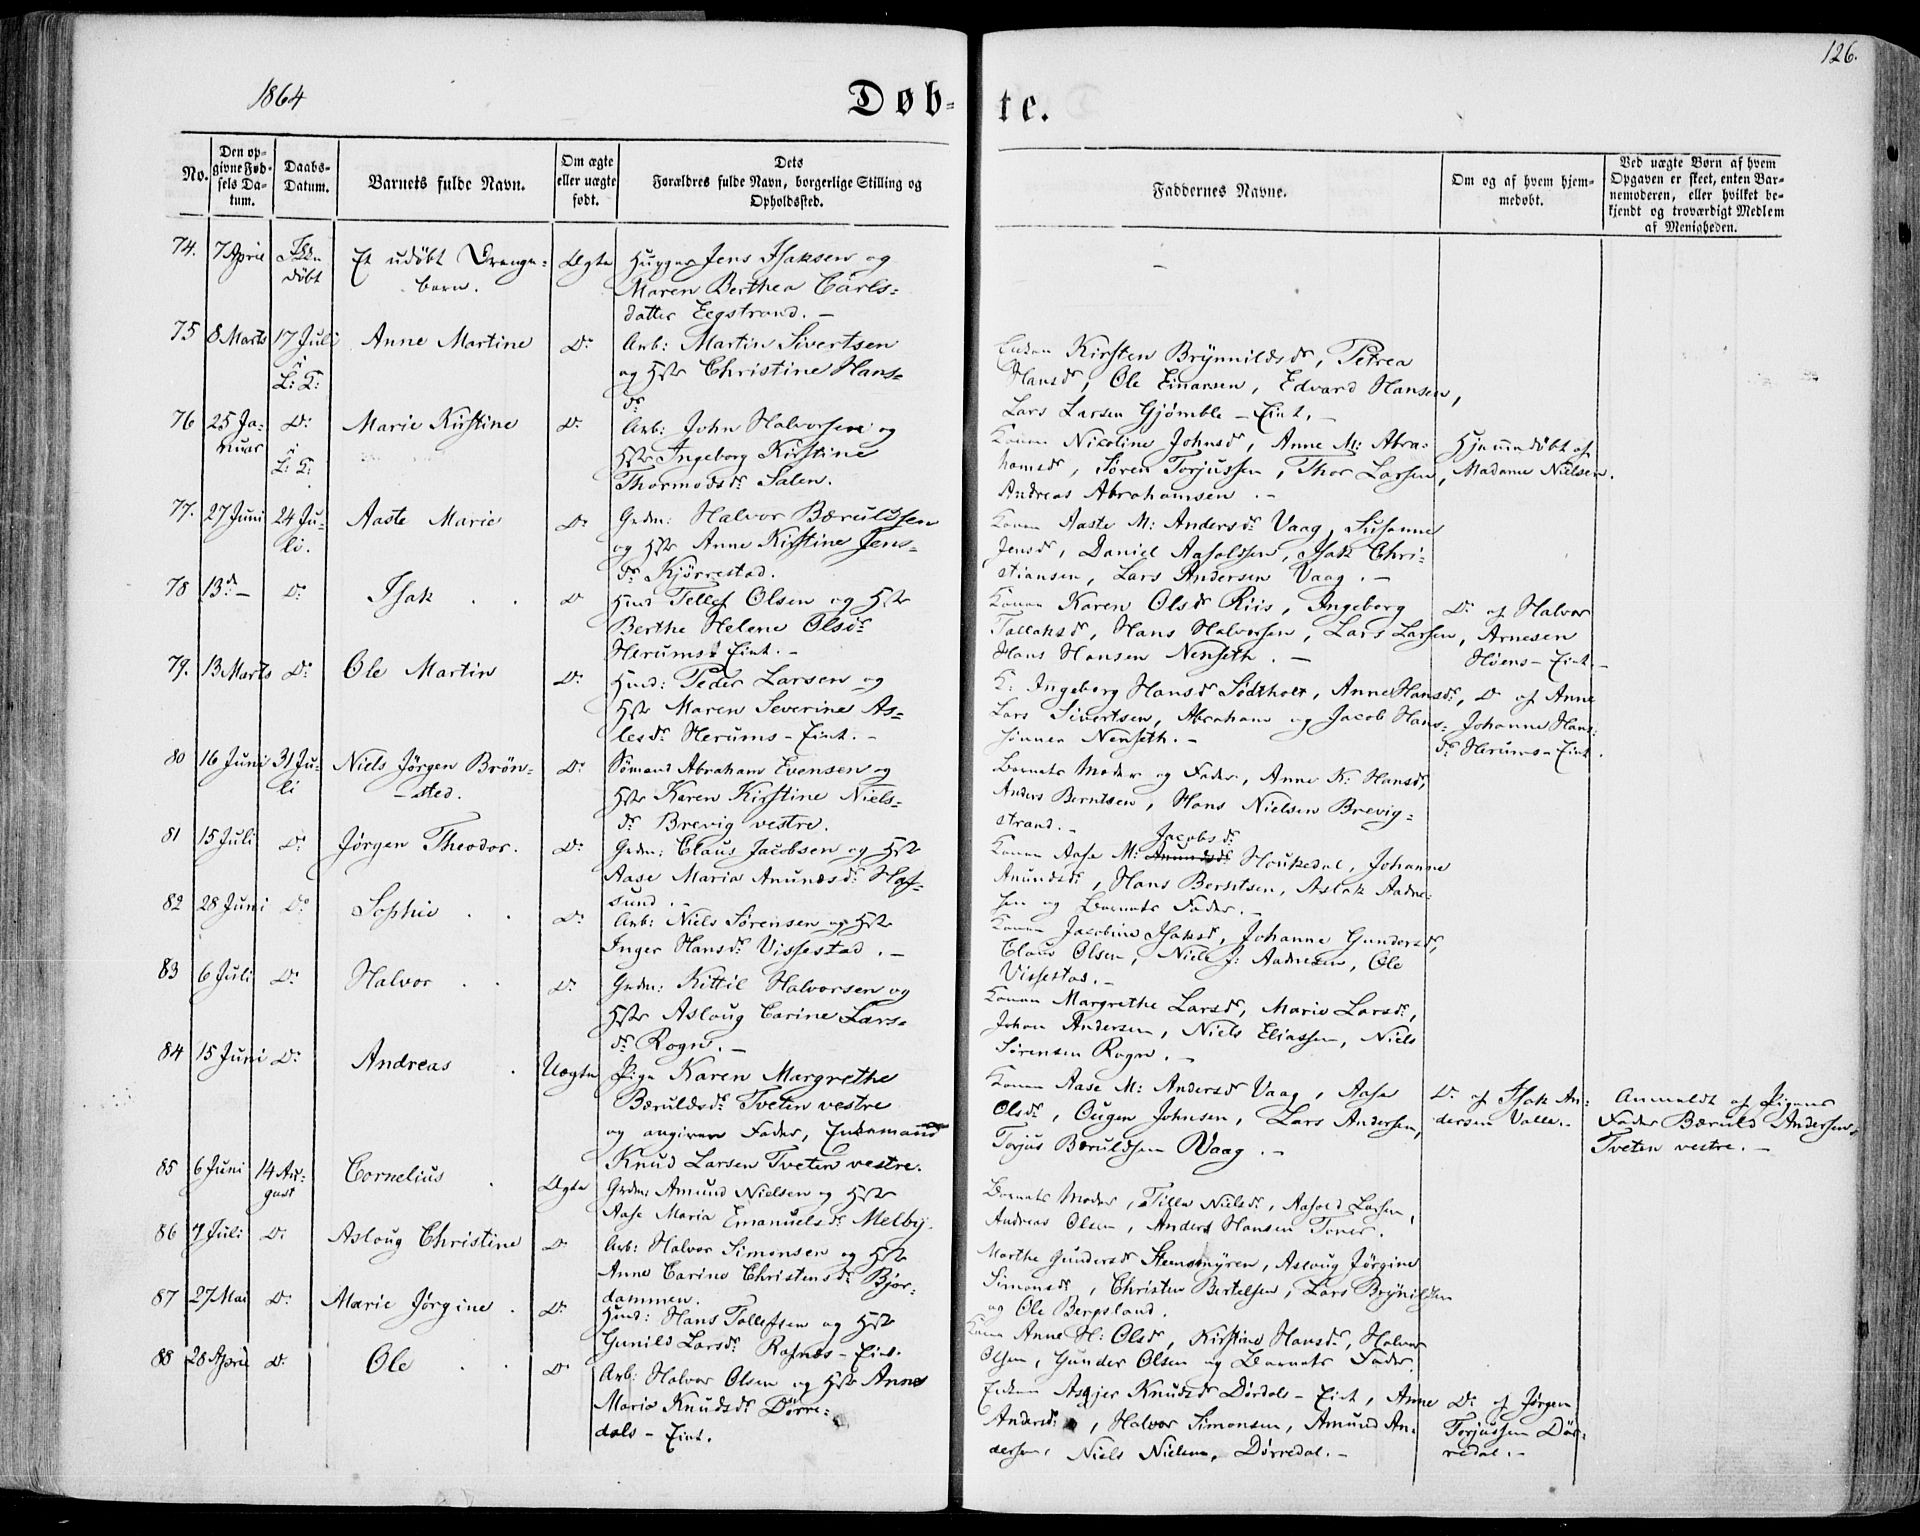 126.
1864
Døb-
te.
No.
Den op-
givne Fød-
sels Da-
tum.
Daabs-
Datum.
Barnets fulde Navn.
Om ægte
eller uægte
født.
Dets
Forældres fulde Navn, borgerlige Stilling og
Opholdssted.
Faddernes Navne.
Om og af hvem hjem-
medøbt.
Ved uægte Børn af hvem
Opgaven er skeet, enten Bar-
nemoderen, eller hvilket be-
kjendt og troværdigt Medlem
af Menigheden.
74. 7 April Ikke Et udöbt Drenge- Ægte Jens Isaksen og
döbt barn. Maren Berthea Carls-
datter Eegstrand. -
75 8 Marts 17 Juli Anne Martine Do Arb: Martin Sivertsen
i og Hst Christine Hans-
L: K: dr
Enken Kirsten Brynnildsdr, Petrea
Hansdr, Ole Einarsen, Edvard Hansen,
Lars Larsen Gjømble - Eint. -
76 25 Ja- Do Marie Kirstine Do Arb: John Halvorsen og
nuar i Hst Ingeborg Kirstine
L: K: Thormodsdr Salen.
Konen Nicoline Johnsdr, Anne M: Abra- Hjemmedöbt af
hamsdr, Sören Torjussen, Thor Larsen, Madame Nielsen.
Andreas Abrahamsen. -
77. 27 Juni 24 Ju- Aaste Marie Do Grdm: Halvor Bæruldsen
li. og Hst Anne Kirstine Jens-
dr Kjörrestad.
Konen Aaste M: Andersdr Vaag, Susanne
Jensdr, Daniel Aasoldsen, Isak Chri-
stiansen, Lars Andersen Vaag. -
78 13 d - Do Isak Do Hmd Tellef Olsen og Hst
Berthe Helene Olsdr
Herums Eint. -
Konen Karen Olsdr Riis, Ingeborg Do af Halvor
Tallaksdr, Hans Halvorsen, Lars Larsen, Arnesen
Hans Hansen Nenseth. - Höens-Eint. -
79. 13 Marts Do Ole Martin Do Hmd: Peder Larsen og
Hst Maren Severine As-
lesdr Herums-Eint. -
K: Ingeborg Hansdr Södtholt, Anne Hansdr, Do af Anne
Lars Sivertsen, Abraham og Jacob Hans- Johanne Hans-
sönner Nenseth. - dr Herums-Eint.
80 16 Juni 31 Ju- Niels Jörgen Brön- Do Sömand Abraham Evensen og
li -sted. Hst Karen Kirstine Niels-
dr Brevig vestre.
Barnets Moder og Fader, Anne K: Hansdr,
Anders Berntsen, Hans Nielsen Brevig-
strand. -
81 15 Juli Do Jörgen Theodor. Do Grdm: Claus Jacobsen og Hst
Aase Maria Amundsdr Haf-
sund. -
Jacobsdr
Konen Aase M: Amundsdr Houkedal, Johanne
Amundsdr, Hans Berntsen, Aslak Aadne-
sen og Barnets Fader. -
82 28 Juni Do Sophie Do Arb: Niels Sörensen og Hst
Inger Hansdr Vissestad. -
Konen Jacobine Isaksdr, Johanne Gundersdr,
Claus Olsen, Niels J: Aadnesen, Ole
Vissestad. -
83 6 Juli Do Halvor Do Grdm: Kittil Halvorsen og
Hst Aslaug Carine Lars-
dr Rogn. -
Konen Margrethe Larsdr, Marie Larsdr,
Johan Andersen, Niels Eliassen, Niels
Sörensen Rogn. -
84 15 Juni Do Andreas Uægte Pige Karen Margrethe
Bæruldsdr Tveten vestre
og angiven Fader, Enkemand
Knud Larsen Tveten vestre.
Konen Aase M: Andersdr Vaag, Aase Do af Isak An- Anmeldt af Pigens
Olsdr, Ougen Johnsen, Lars Andersen, dersen Valle. - Fader Bæruld Andersen
Torjus Bæruldsen Vaag. - Tveten vestre. -
85 6 Juni 14 Au- Cornelius Ægte Grdm: Amund Nielsen og Hst
gust Aase Maria Emanuelsdr Melby.
Barnets Moder, Tilla Nielsdr, Aasold Larsen,
Andreas Olsen, Anders Hansen Toner.
86 7 Juli Do Aslaug Christine Do Arb: Halvor Simonsen og Hst
Anne Carine Christensdr Bjør-
dammen.
Marthe Gundersdr Steensmyren, Aslaug Jörgine
Simonsdr, Christen Bertelsen, Lars Brynildsen
og Ole Bergsland.
87 27 Mai Do Marie Jörgine. Do Hmd: Hans Tollefsen og Hst
Gunild Larsdr Rafnes-Eint.
Konen Anne H: Olsdr, Kirstine Hansdr, Halvor
Olsen, Gunder Olsen og Barnets Fader.
88 28 April Do Ole Do Arb: Halvor Olsen og Hst Anne
Maria Knudsdr Dörre-
dals-Eint.
Enken Asgjer Knudsdr Dørdals-Eint, Anne Do af Jørgen
Andersdr, Halvor Simonsen, Amund An- Torjussen Dör-
dersen, Niels Nielsen, Dørredal. - redal. -